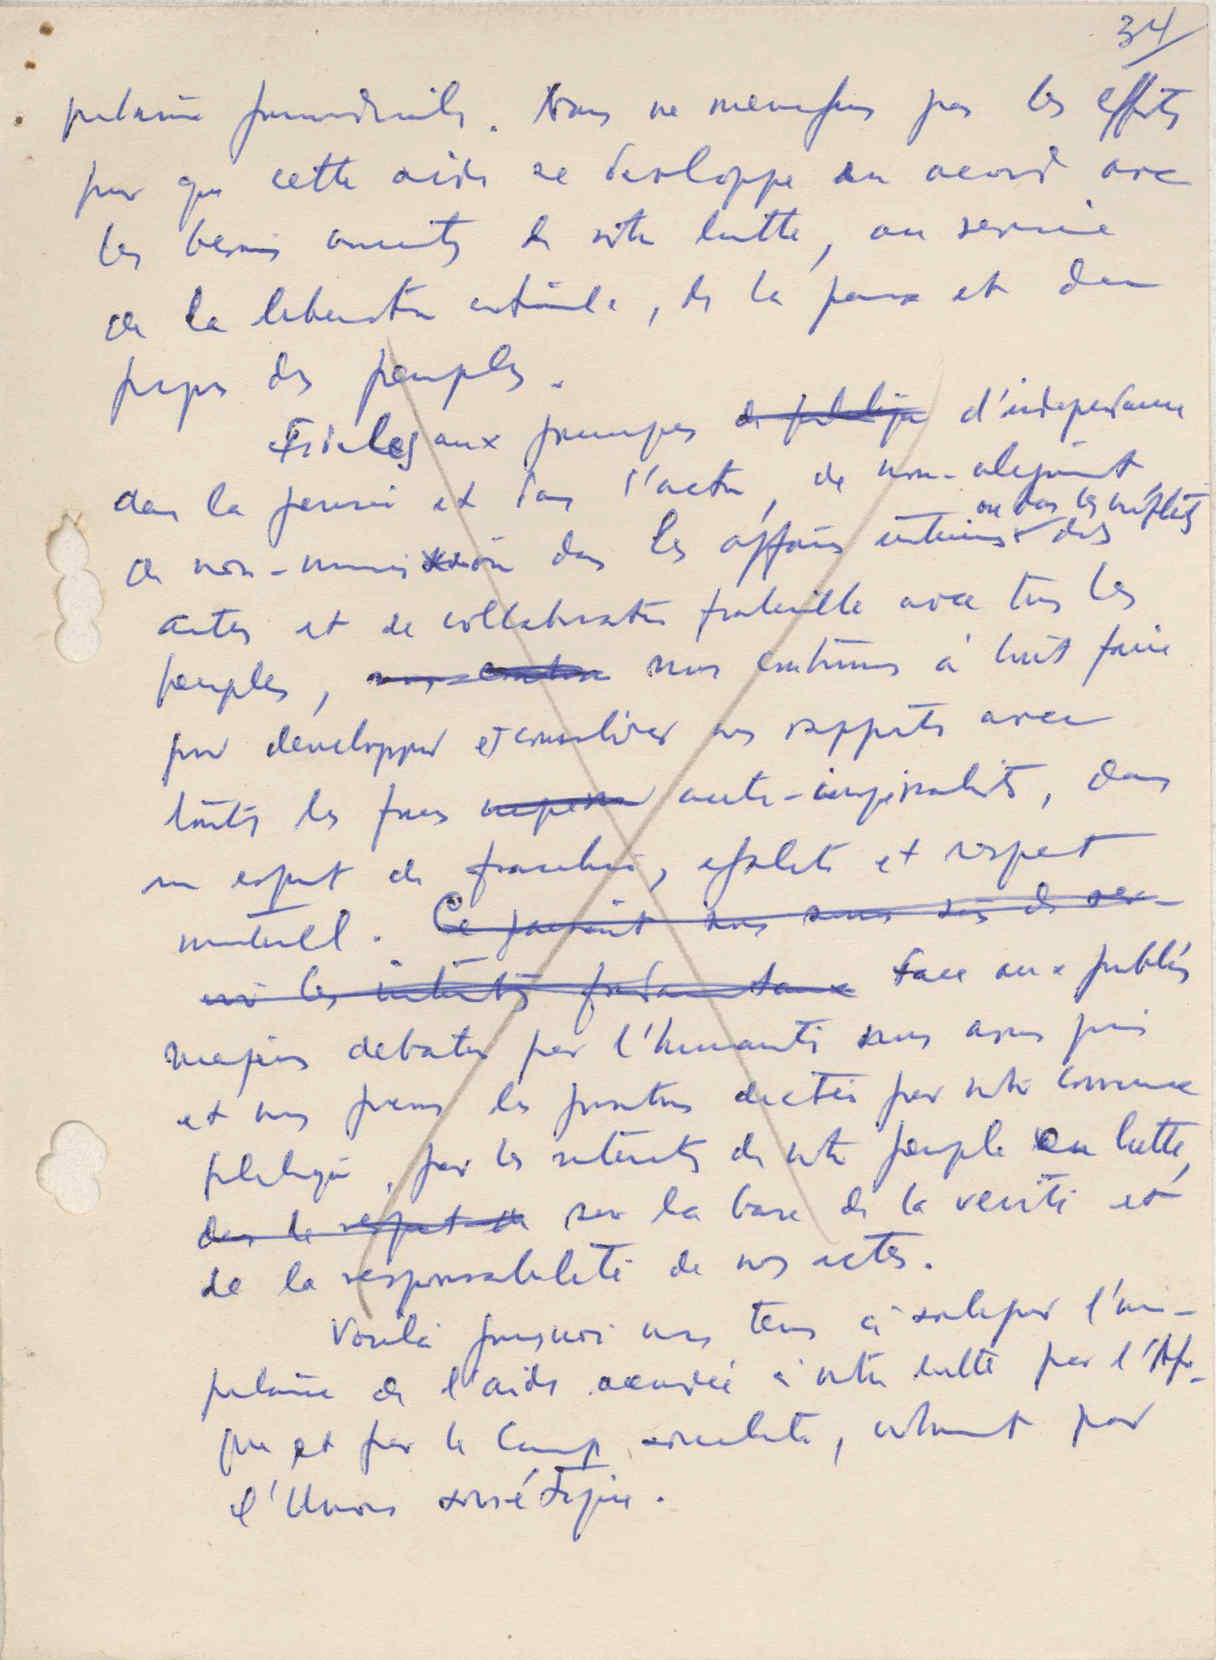 34
Nous ne pas les efforts
pour que cette aide se développe en accord avec
les besoins de notre lutte, au service
de la libération, de la paix et du
progrès des peuples.
Fidèles aux principes de politique d'indépendance
dans la pensée et dans l'action, de non-alignement
ou dans les conflits
de non-immixtion dans les affaires intérieures des
autres et de collaboration fraternelle avec tous les
peuples, nous continuons à tout faire
pour développer et consolider nos rapports avec
toutes les forces anti-impérialistes, dans
un esprit de franchise, égalité et respect
mutuel. Ce faisant nous sommes sûrs de ser-
vir les intérêts fondamentaux Face aux problèmes
majeurs débattus par l'humanité nous avons pris
et nous prenons les positions dictées par notre conscience
politique, par les intérêts de notre peuple en lutte,
dans le respect de sur la base de la vérité et
de la responsabilité de nos actes.
Voilà pourquoi nous tenons à souligner l'im-
portance de l'aide accordée à notre lutte par l'Afri-
que et par le Camp socialiste, notamment par
l'Union soviétique.